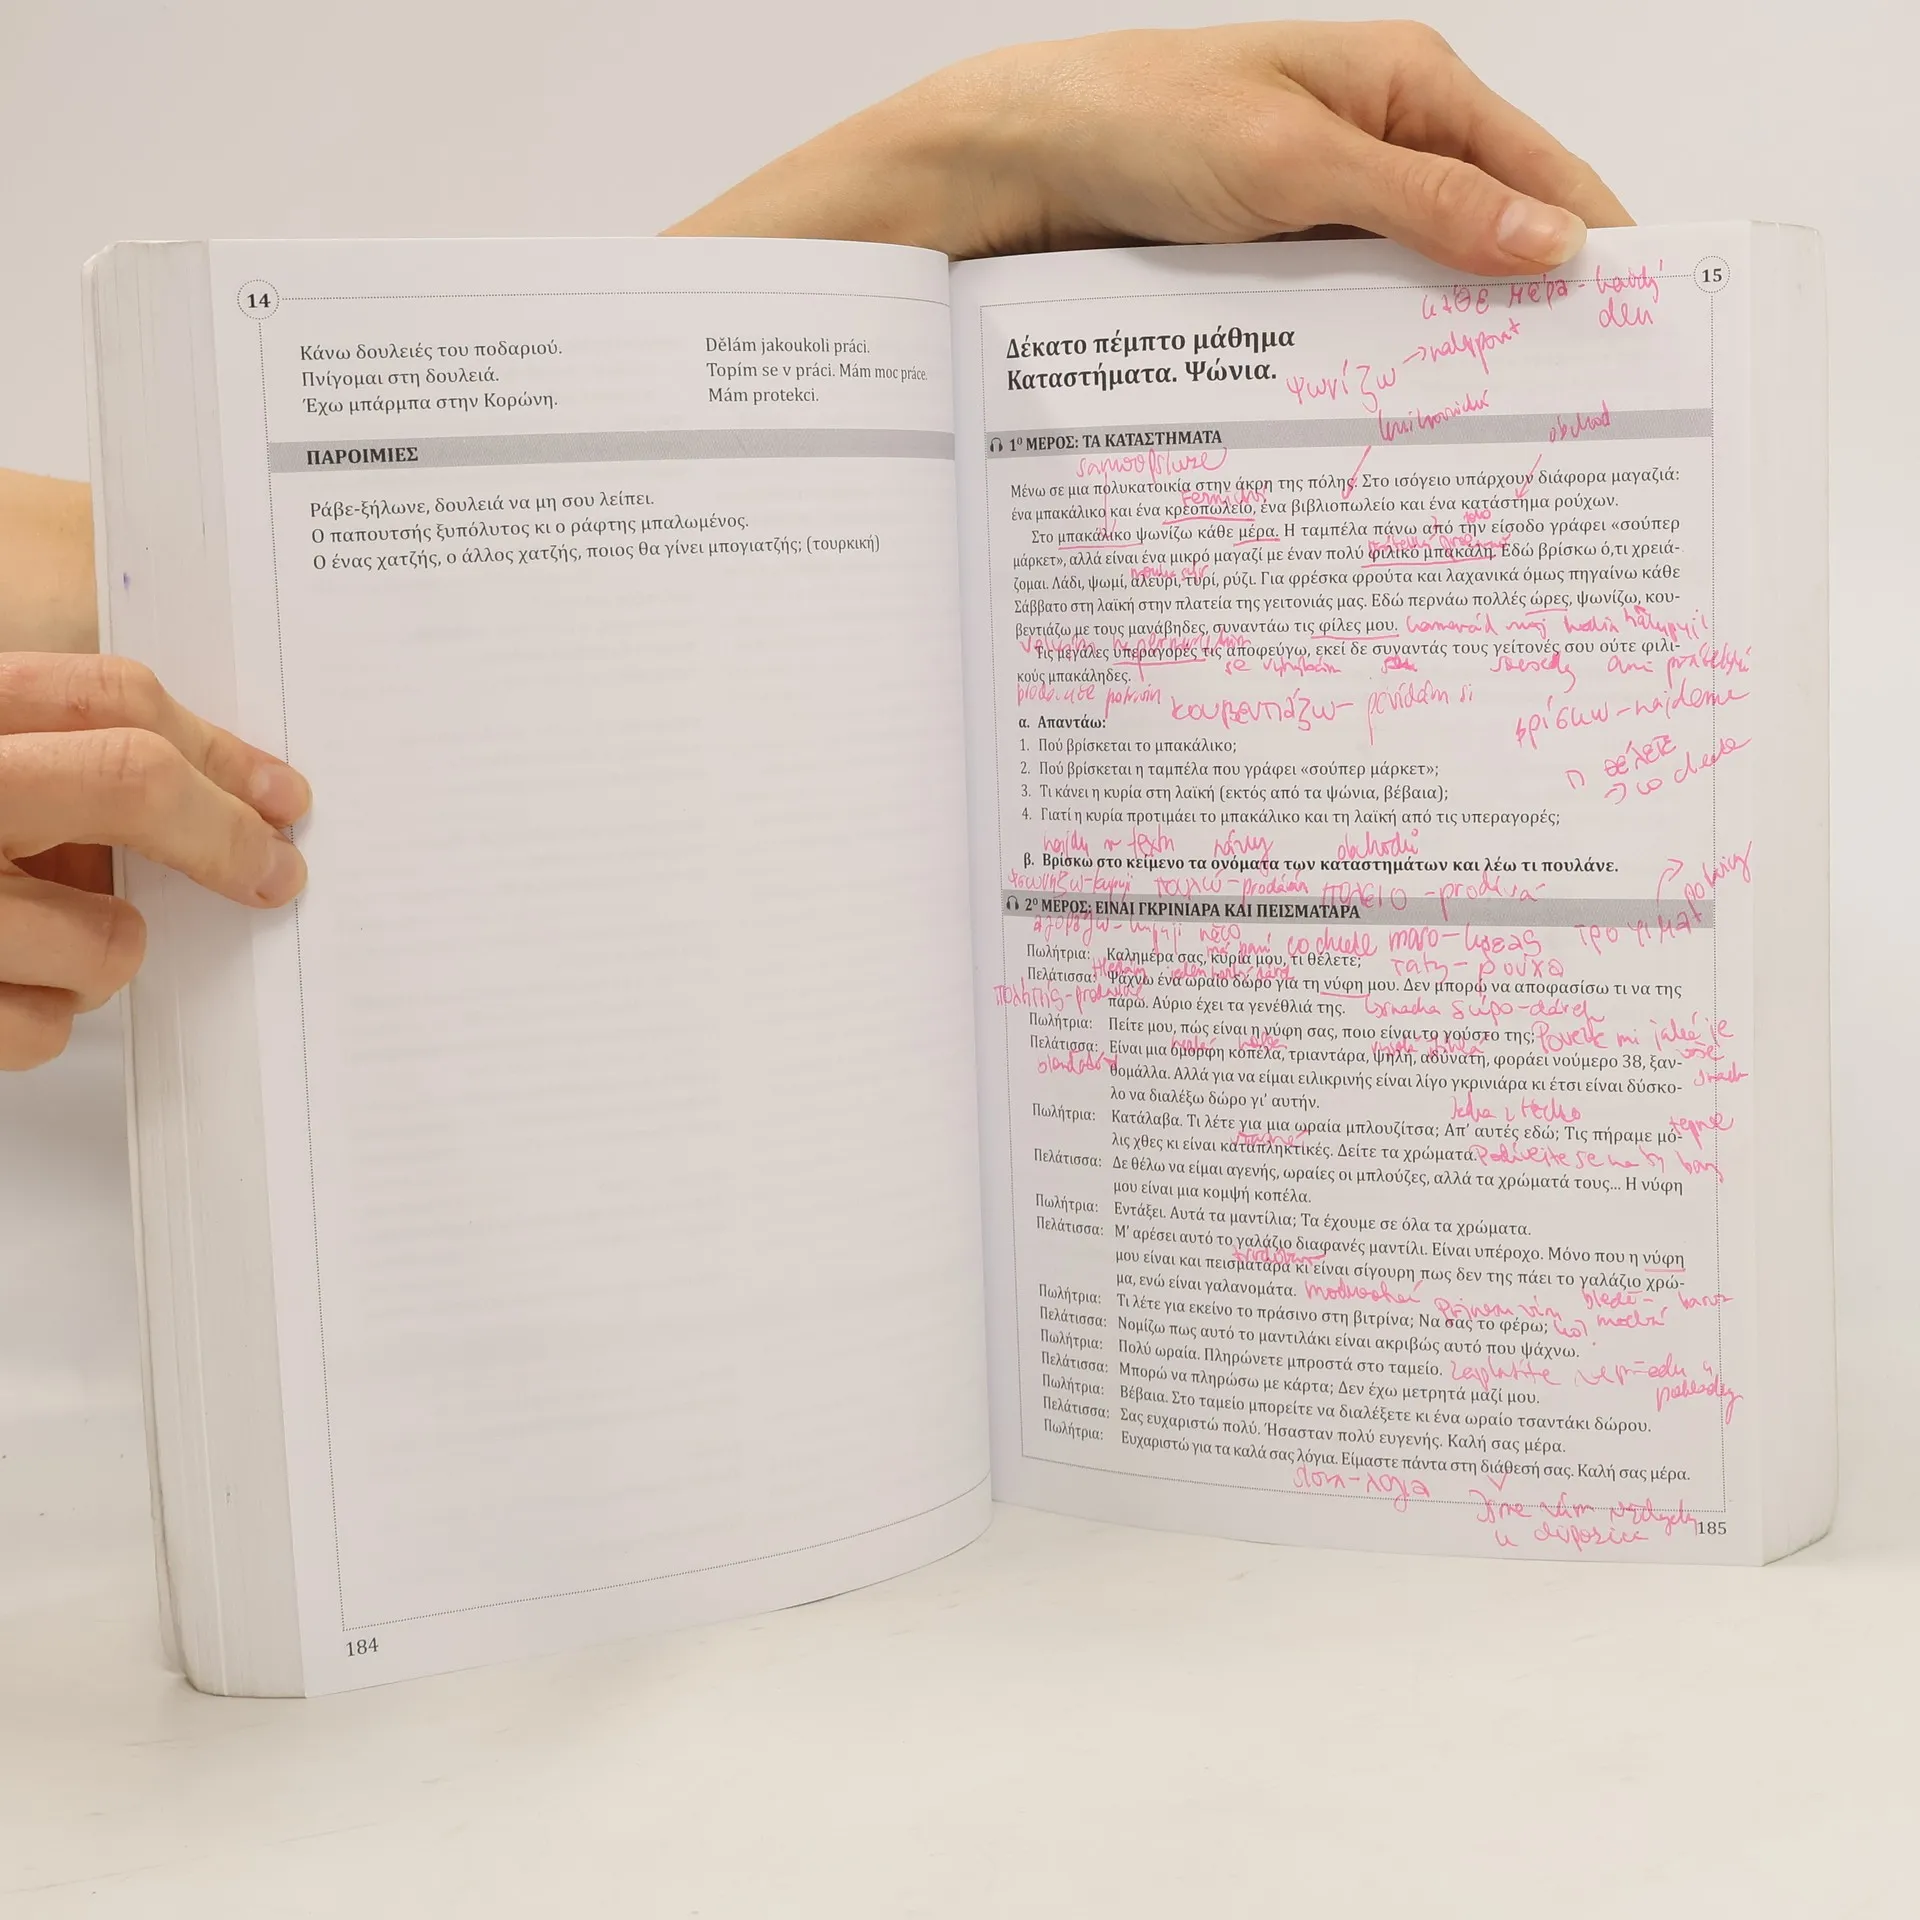 14
Κάνω δουλειές του ποδαριού. Dělám jakoukoli práci.
Πνίγομαι στη δουλειά. Topím se v práci. Mám moc práce.
Έχω μπάρμπα στην Κορώνη. Mám protekci.
ΠΑΡΟΙΜΙΕΣ
Ράβε-ξήλωνε, δουλειά να μη σου λείπει.
Ο παπουτσής ξυπόλυτος κι ο ράφτης μπαλωμένος.
Ο ένας χατζής, ο άλλος χατζής, ποιος θα γίνει μπογιατζής; (τουρκική)
184
15
κάθε μέρα - každý
den
Δέκατο πέμπτο μάθημα
Καταστήματα. Ψώνια.
ψωνίζω → nakupovat
knihovnictví
obchod
1º ΜΕΡΟΣ: ΤΑ ΚΑΤΑΣΤΗΜΑΤΑ
Μένω σε μια πολυκατοικία στην άκρη της πόλης. Στο ισόγειο υπάρχουν διάφορα μαγαζιά:
ένα μπακάλικο και ένα κρεοπωλείο, ένα βιβλιοπωλείο και ένα κατάστημα ρούχων.
Στο μπακάλικο ψωνίζω κάθε μέρα. Η ταμπέλα πάνω από την είσοδο γράφει «σούπερ
μάρκετ», αλλά είναι ένα μικρό μαγαζί με έναν πολύ φιλικό μπακάλη. Εδώ βρίσκω ό,τι χρειά-
ζομαι. Λάδι, ψωμί, αλεύρι, τυρί, ρύζι. Για φρέσκα φρούτα και λαχανικά όμως πηγαίνω κάθε
Σάββατο στη λαϊκή στην πλατεία της γειτονιάς μας. Εδώ περνάω πολλές ώρες, ψωνίζω, κου-
βεντιάζω με τους μανάβηδες, συναντάω τις φίλες μου.
Τις μεγάλες υπεραγορές τις αποφεύγω, εκεί δε συναντάς τους γείτονές σου ούτε φιλι-
κούς μπακάληδες.
κουβεντιάζω - povídám si
βρίσκω - najdeme
α. Απαντάω:
1. Πού βρίσκεται το μπακάλικο;
2. Πού βρίσκεται η ταμπέλα που γράφει «σούπερ μάρκετ»;
θέλετε
→ co chcete
3. Τι κάνει η κυρία στη λαϊκή (εκτός από τα ψώνια, βέβαια);
4. Γιατί η κυρία προτιμάει το μπακάλικο και τη λαϊκή από τις υπεραγορές;
obchodů
β. Βρίσκω στο κείμενο τα ονόματα των καταστημάτων και λέω τι πουλάνε.
2º ΜΕΡΟΣ: ΕΙΝΑΙ ΓΚΡΙΝΙΑΡΑ ΚΑΙ ΠΕΙΣΜΑΤΑΡΑ
co chcete maso - κρεας
Πωλήτρια: Καλημέρα σας, κυρία μου, τι θέλετε;
šaty - ρούχα
Πελάτισσα: Ψάχνω ένα ωραίο δώρο για τη νύφη μου. Δεν μπορώ να αποφασίσω τι να της
πάρω. Αύριο έχει τα γενέθλιά της.
Πωλήτρια: Πείτε μου, πώς είναι η νύφη σας, ποιο είναι το γούστο της;
Πελάτισσα: Είναι μια όμορφη κοπέλα, τριαντάρα, ψηλή, αδύνατη, φοράει νούμερο 38, ξαν-
θομάλλα. Αλλά για να είμαι ειλικρινής είναι λίγο γκρινιάρα κι έτσι είναι δύσκο-
λο να διαλέξω δώρο γι' αυτήν.
Πωλήτρια: Κατάλαβα. Τι λέτε για μια ωραία μπλουζίτσα; Απ' αυτές εδώ; Τις πήραμε μό-
λις χθες κι είναι καταπληκτικές. Δείτε τα χρώματα.
Πελάτισσα: Δε θέλω να είμαι αγενής, ωραίες οι μπλούζες, αλλά τα χρώματά τους... Η νύφη
μου είναι μια κομψή κοπέλα.
Πωλήτρια: Εντάξει. Αυτά τα μαντίλια; Τα έχουμε σε όλα τα χρώματα.
Πελάτισσα: Μ' αρέσει αυτό το γαλάζιο διαφανές μαντίλι. Είναι υπέροχο. Μόνο που η νύφη
μου είναι και πεισματάρα κι είναι σίγουρη πως δεν της πάει το γαλάζιο χρώ-
μα, ενώ είναι γαλανομάτα.
Πωλήτρια: Τι λέτε για εκείνο το πράσινο στη βιτρίνα; Να σας το φέρω;
Πελάτισσα: Νομίζω πως αυτό το μαντιλάκι είναι ακριβώς αυτό που ψάχνω.
Πωλήτρια: Πολύ ωραία. Πληρώνετε μπροστά στο ταμείο.
Πελάτισσα: Μπορώ να πληρώσω με κάρτα; Δεν έχω μετρητά μαζί μου.
Πωλήτρια: Βέβαια. Στο ταμείο μπορείτε να διαλέξετε κι ένα ωραίο τσαντάκι δώρου.
Πελάτισσα: Σας ευχαριστώ πολύ. Ήσασταν πολύ ευγενής. Καλή σας μέρα.
Πωλήτρια: Ευχαριστώ για τα καλά σας λόγια. Είμαστε πάντα στη διάθεσή σας. Καλή σας μέρα.
slova - λογια
Jsme vám vždycky
k dispozici
185